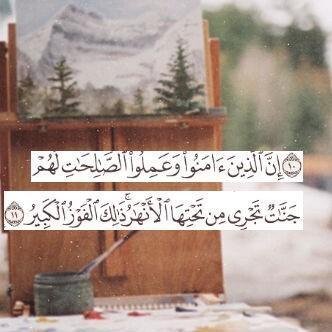 ١٠ إِنَّ ٱلَّذِينَ ءَامَنُوا۟ وَعَمِلُوا۟ ٱلصَّـٰلِحَـٰتِ لَهُمْ
جَنَّـٰتٌ تَجْرِى مِن تَحْتِهَا ٱلْأَنْهَـٰرُ ۚ ذَٰلِكَ ٱلْفَوْزُ ٱلْكَبِيرُ ١١